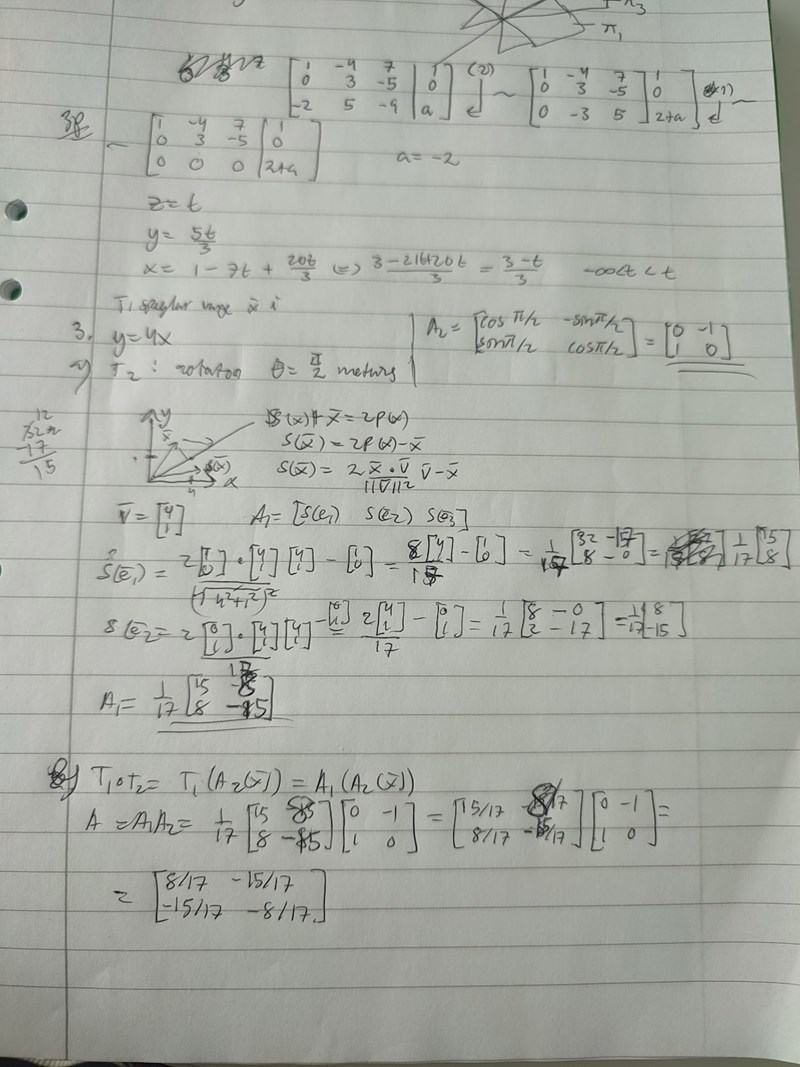 π₃
π₁
[1 -4 7 | 1; 0 3 -5 | 0; -2 5 -9 | a] (2) ~ [1 -4 7 | 1; 0 3 -5 | 0; 0 -3 5 | 2+a] (1) ~
3p
~ [1 -4 7 | 1; 0 3 -5 | 0; 0 0 0 | 2+a] a = -2
z = t
y = 5t/3
x = 1 - 7t + 20t/3 (=) 3-21t+20t/3 = 3-t/3 -∞<t<t
T₁ speglar varje x̄ i
3. y = 4x
a) T₂: rotation θ = π/2 moturs
A₂ = [cos π/2 -sin π/2; sin π/2 cos π/2] = [0 -1; 1 0]
12
-17
15
y
x̄
S(x̄)
x
4
S(x)+x̄ = 2P(x)
S(x̄) = 2P(x) - x̄
S(x̄) = 2 x̄•v̄/||v̄||² v̄ - x̄
v̄ = [4; 1] A₁ = [S(e₁) S(e₂) S(e₃)]
S(ē₁) = 2[1; 0]•[4; 1]/(√4²+1²)² [4; 1] - [1; 0] = 8[4; 1]/17 - [1; 0] = 1/17 [32 -17; 8 -0] = 1/17 [15; 8]
S(ē₂ = 2[0; 1]•[4; 1]/17 [4; 1] - [0; 1] = 2[4; 1]/17 - [0; 1] = 1/17 [8 -0; 2 -17] = 1/17 [8; -15]
A₁ = 1/17 [15 8; 8 -15]
b) T₁∘T₂ = T₁(A₂(x̄)) = A₁(A₂(x̄))
A = A₁A₂ = 1/17 [15 8; 8 -15][0 -1; 1 0] = [15/17 8/17; 8/17 -15/17][0 -1; 1 0] =
= [8/17 -15/17; -15/17 -8/17]